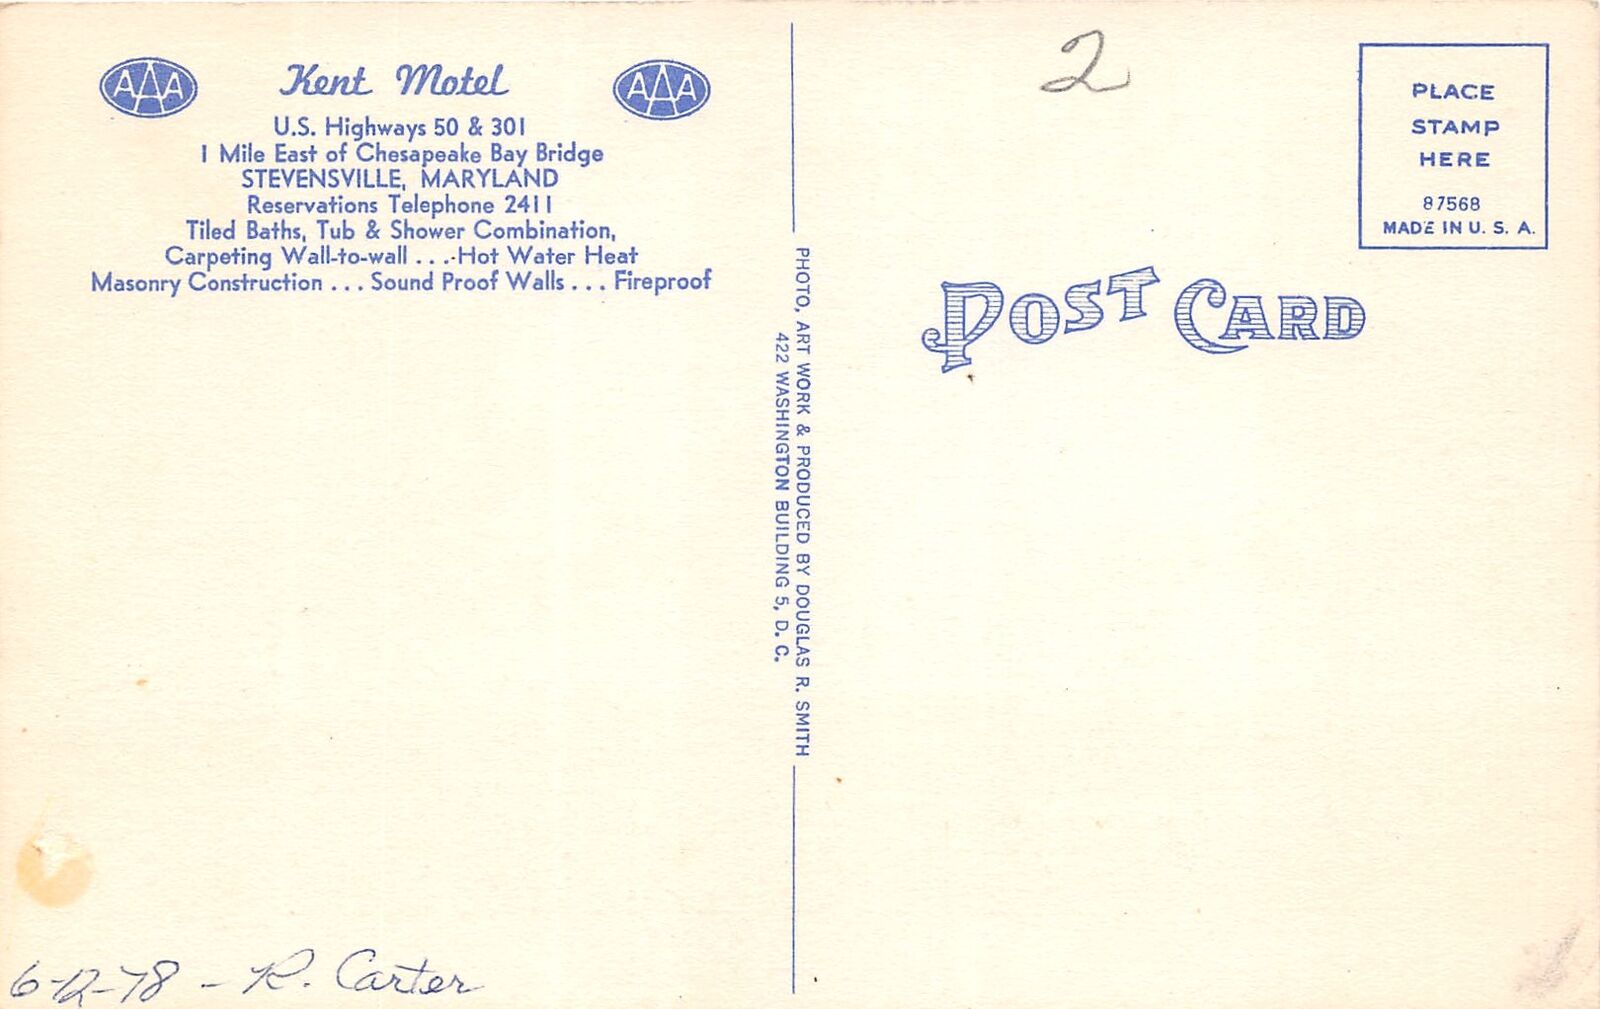 AAA Kent Motel AAA
U.S. Highways 50 & 301
1 Mile East of Chesapeake Bay Bridge
STEVENSVILLE, MARYLAND
Reservations Telephone 2411
Tiled Baths, Tub & Shower Combination,
Carpeting Wall-to-wall . . . Hot Water Heat
Masonry Construction . . . Sound Proof Walls . . . Fireproof
6-12-78 - R. Carter
PHOTO, ART WORK & PRODUCED BY DOUGLAS R. SMITH
422 WASHINGTON BUILDING 5, D. C.
2
PLACE
STAMP
HERE
87568
MADE IN U. S. A.
POST CARD